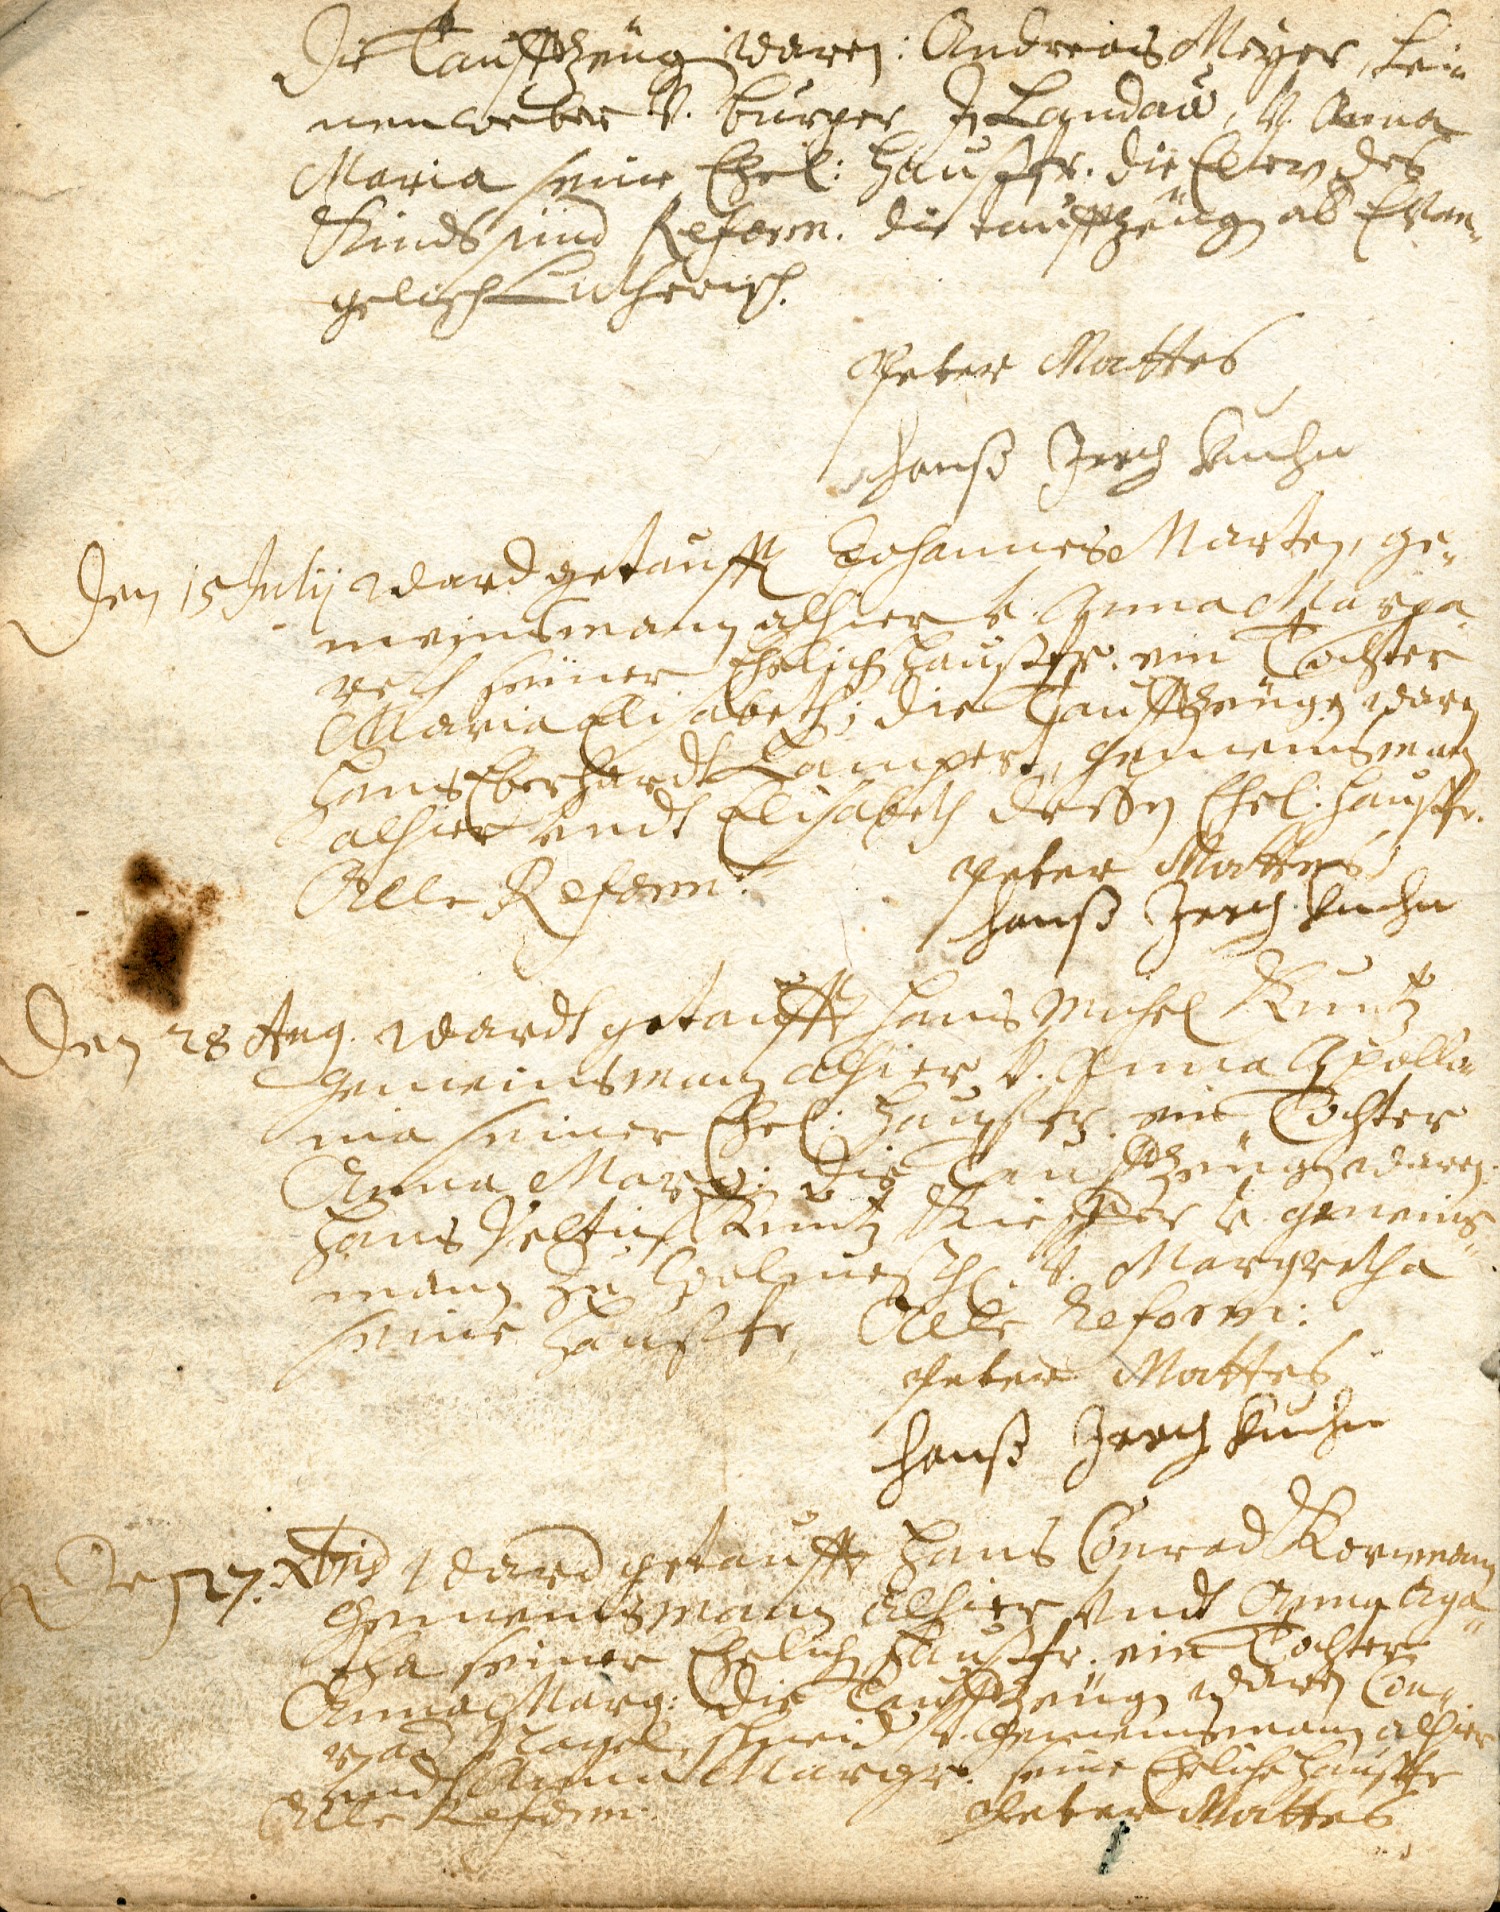 Die Tauffzeüg waren: Andreas Meÿer, Lei-
nenweber V. burger Zu Landaw, V. Anna
Maria seine Ehel: haußfr. die Eltern des
Kinds sind Reform. die tauffzeüg ab Evan-
gelisch Lutherisch.
Peter Mattes
Hanß Jerch Kuchn
Den 15 Julij ward getaufft Johannes Marten, ge-
meinsmann alhier v. Anna Marga-
reth seiner Ehelich haußfr. ein Tochter
Maria Elisabeth; die Tauffzeügen waren
Hans Eberhardt Lampert, gemeinsmann
alhier vndt Elisabeth dessen Ehel: haußfr.
Alle Reform:
Peter Mattes
Hanß Jerch Kuchn
Den 28 Aug. wardt getaufft Hans Michel Kuntz
gemeinsmann alhier V. Anna Apollo-
nia seiner Ehel: haußfr. ein Tochter
Anna Marg: die Tauffzeügen waren
Hans Veltin Kuntz Kieffer v. gemeins-
mann zu V. Margretha
seine haußfr, Alle Reform:
Peter Mattes
Hanß Jerch Kuchn
Den 27. Xbris ward getaufft Hans Conrad Kornmann
gemeinsmann alhier Vndt Anna Aga-
tha seiner Ehelich haußfr. ein Tochter
Anna Marg: die Tauffzeügen waren Con-
rad Nagel, schmid v. gemeinsmann alhier
vndt Anna Margr. seine Eheliche haußfr
Alle Reform:
Peter Mattes